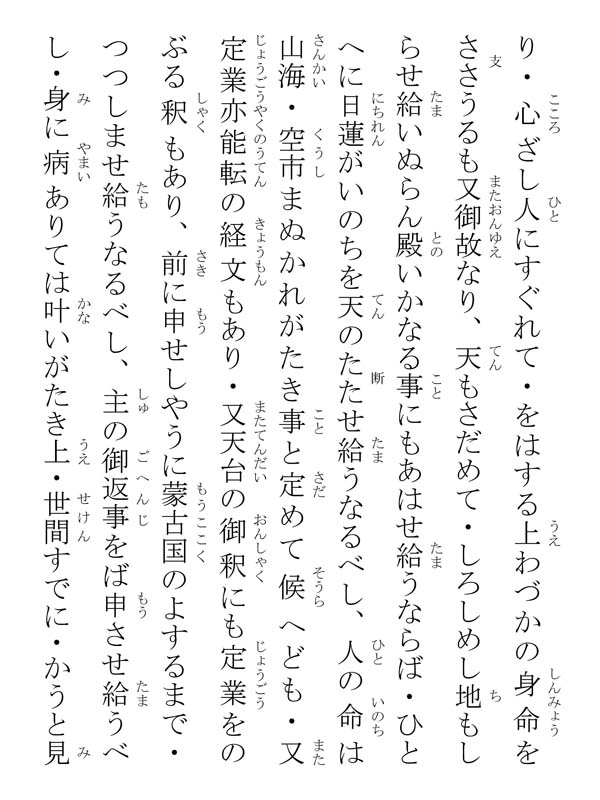 り・心ざし人にすぐれて・をはする上わづかの身命を
ささうるも又御故なり、天もさだめて・しろしめし地もし
らせ給いぬらん殿いかなる事にもあはせ給うならば・ひと
へに日蓮がいのちを天のたたせ給うなるべし、人の命は
山海・空市まぬかれがたき事と定めて候へども・又
定業亦能転の経文もあり・又天台の御釈にも定業をの
ぶる釈もあり、前に申せしやうに蒙古国のよするまで・
つつしませ給うなるべし、主の御返事をば申させ給うべ
し・身に病ありては叶いがたき上・世間すでに・かうと見